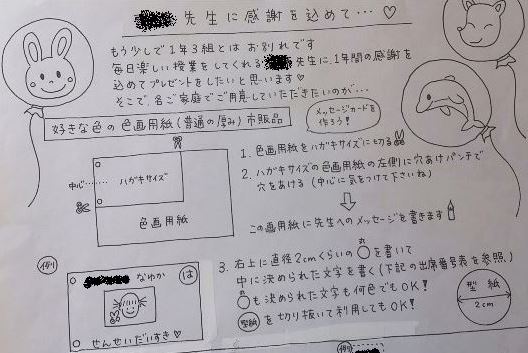 先生に感謝を込めて…♡
もう少しで1年3組とは お別れです
毎日楽しい授業をしてくれる 先生に、1年間の感謝を
込めてプレゼントをしたいと思います♡
そこで、各ご家庭でご用意していただきたいのが…
好きな色の色画用紙(普通の厚み)市販品
メッセージカードを
作ろう!
中心………
ハガキサイズ
色画用紙
1. 色画用紙をハガキサイズに切る
2. ハガキサイズの色画用紙の左側に穴あけパンチで
穴をあける(中心に気をつけて下さいね)
この画用紙に先生へのメッセージを書きます
例
なゆか
は
せんせいだいすき♡
3. 右上に直径2cmくらいの○を書いて
丸
中に決められた文字を書く(下記の出席番号表を参照.)
○も決められた文字も何色でもOK!
丸
型紙 を切り抜いて利用してもOK!
型紙
2cm